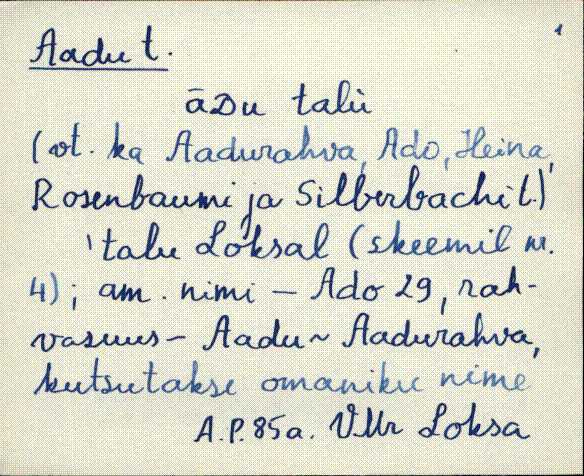 1
Aadu t.
āDu talu
(vt. ka Aadurahva, Ado, Heina,
Rosenbaumi ja Silberbachi t.)
'talu Loksal (skeemil nr.
4); am. nimi – Ado 29, rah-
vasuus – Aadu ~ Aadurahva,
kutsutakse omaniku nime
A.P. 85a. VMr Loksa